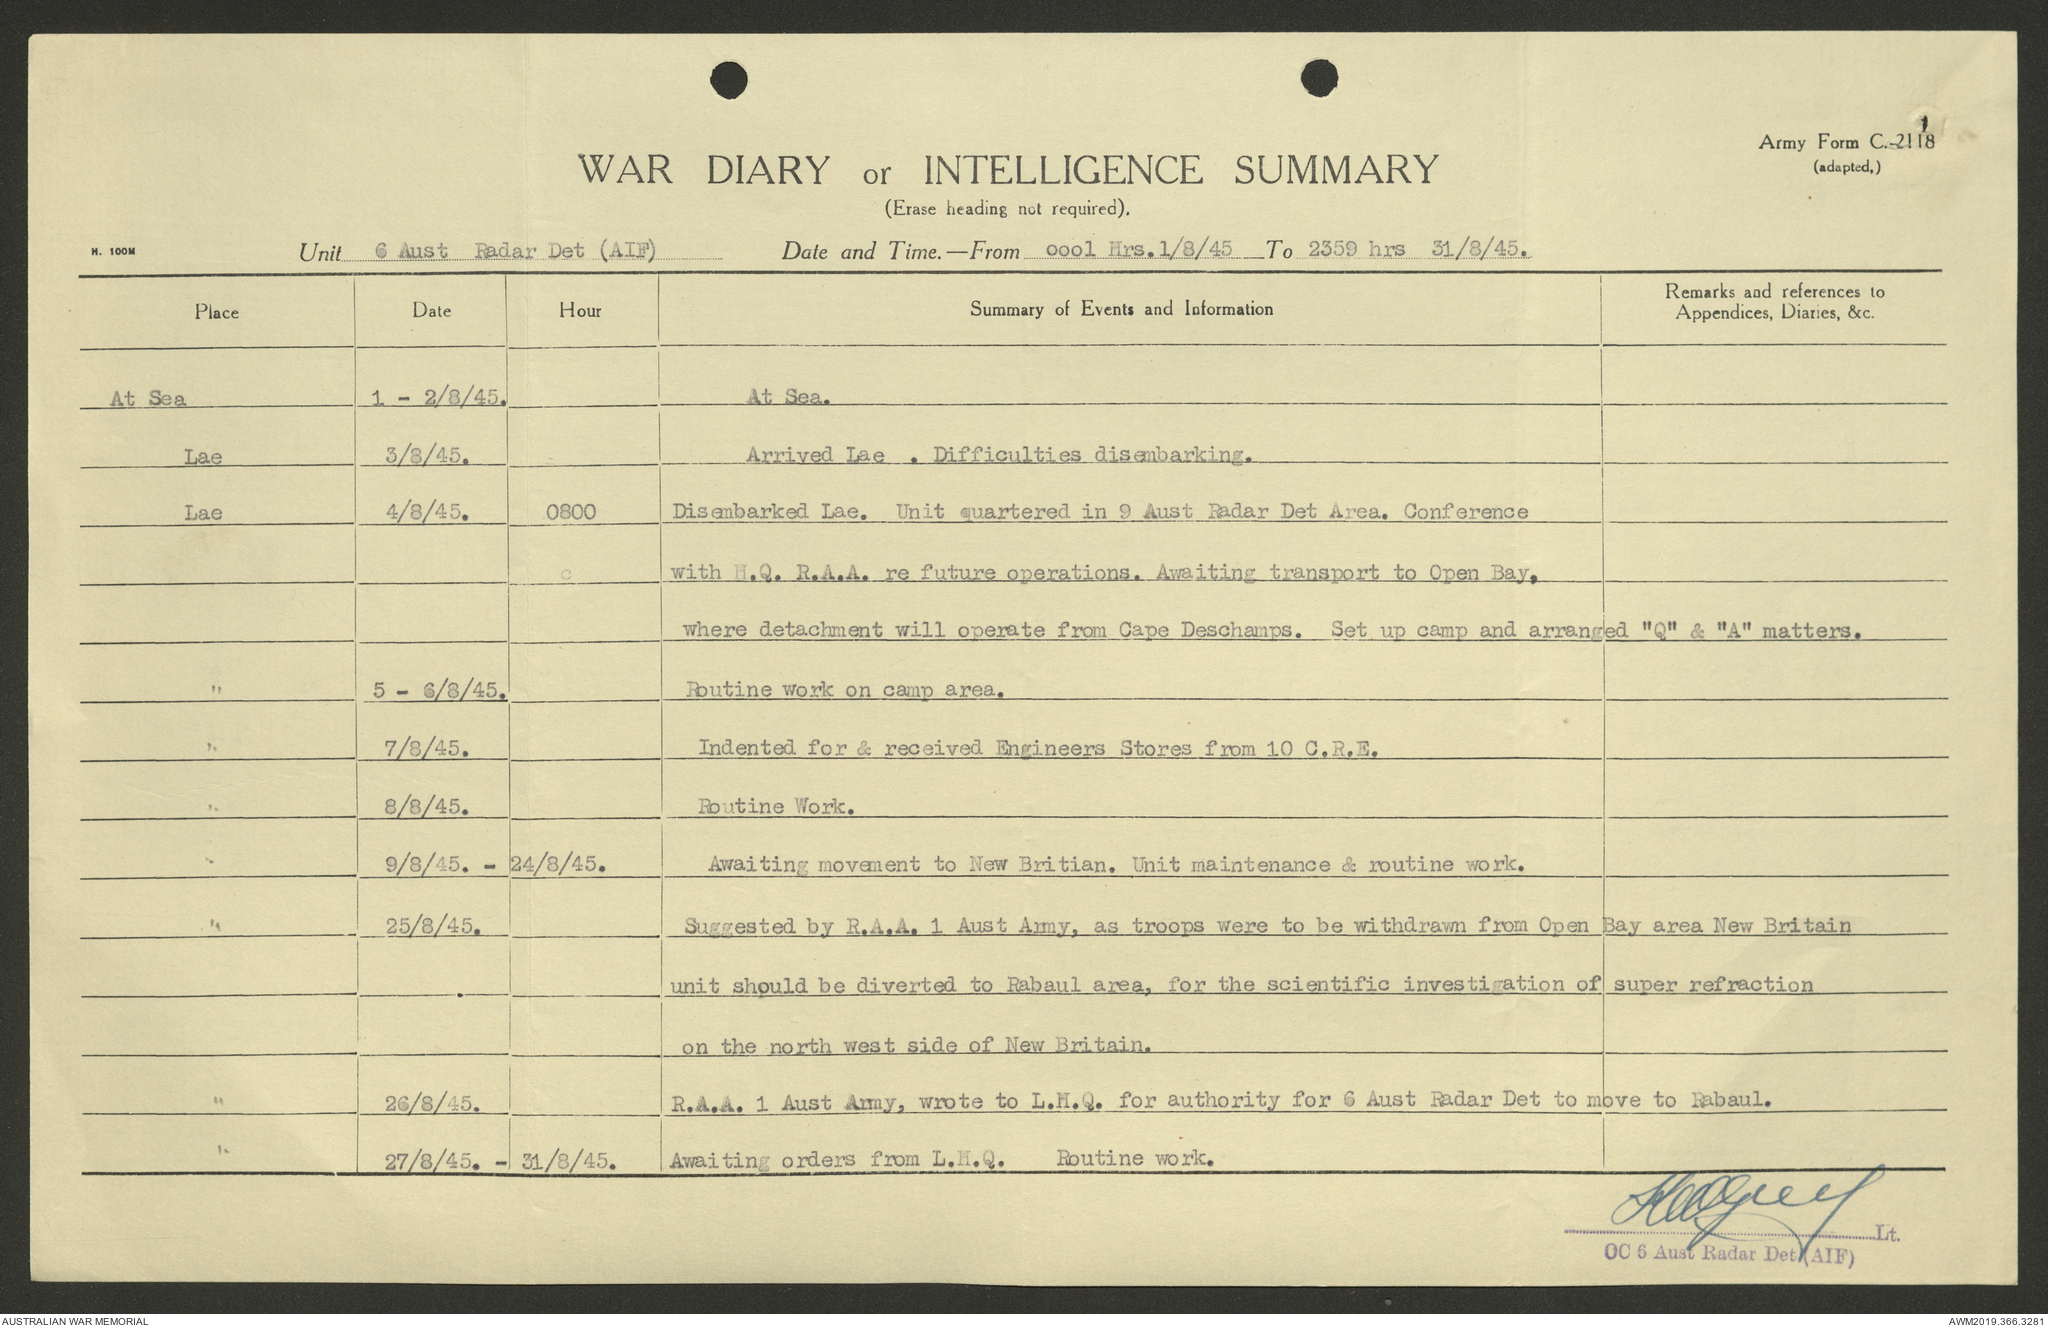 Army Form C. 2118
(adapted,)
WAR DIARY or INTELLIGENCE SUMMARY
(Erase heading not required).
H. 100M
Unit 6 Aust Radar Det (AIF) Date and Time.—From 0001 Hrs.1/8/45 To 2359 hrs 31/8/45.
Place Date Hour Summary of Events and Information Remarks and references to
Appendices, Diaries, &c.
At Sea 1 - 2/8/45. At Sea.
Lae 3/8/45. Arrived Lae . Difficulties disembarking.
Lae 4/8/45. 0800 Disembarked Lae. Unit quartered in 9 Aust Radar Det Area. Conference
with H.Q. R.A.A. re future operations. Awaiting transport to Open Bay,
where detachment will operate from Cape Deschamps. Set up camp and arranged "Q" & "A" matters.
" 5 - 6/8/45. Routine work on camp area.
" 7/8/45. Indented for & received Engineers Stores from 10 C.R.E.
" 8/8/45. Routine Work.
" 9/8/45. - 24/8/45. Awaiting movement to New Britian. Unit maintenance & routine work.
" 25/8/45. Suggested by R.A.A. 1 Aust Army, as troops were to be withdrawn from Open Bay area New Britain
unit should be diverted to Rabaul area, for the scientific investigation of super refraction
on the north west side of New Britain.
" 26/8/45. R.A.A. 1 Aust Army, wrote to L.H.Q. for authority for 6 Aust Radar Det to move to Rabaul.
" 27/8/45. - 31/8/45. Awaiting orders from L.H.Q. Routine work.
Lt.
OC 6 Aust Radar Det (AIF)
AUSTRALIAN WAR MEMORIAL AWM2019.366.3281